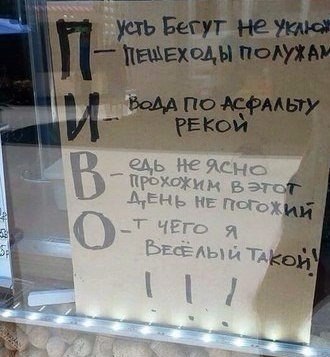 П-усть Бегут не уклюж
Пешеходы по лужам
И-Вода по асфальту
рекой
В-едь не ясно
прохожим в этот
день не погожий
О-т чего я
Весёлый такой!
!!!